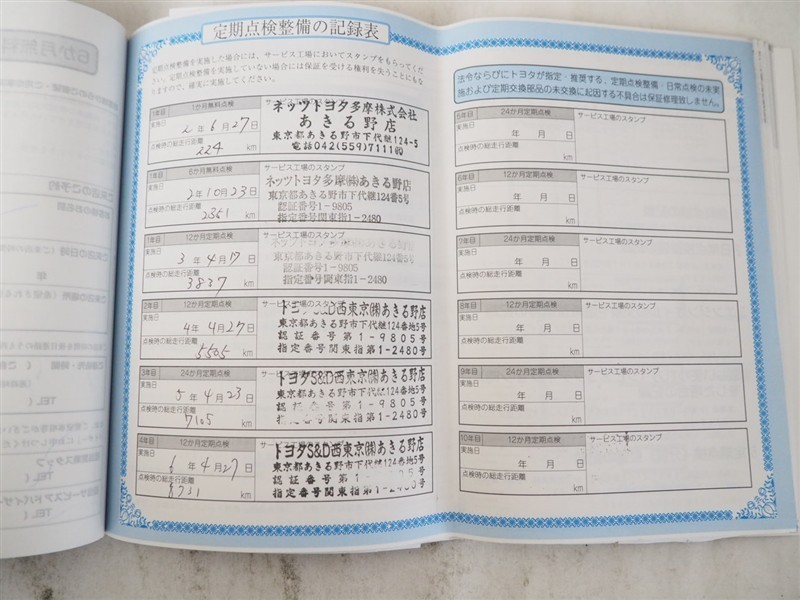 定期点検整備の記録表
定期点検整備を実施した場合には、サービス工場においてスタンプをもらってくだ
さい。定期点検整備を実施していない場合には保証を受ける権利を失うことにもな
りますので、確実に実施してください。
1年目 1か月無料点検
実施日
2年6月27日
点検時の総走行距離
224 km
ネッツトヨタ多摩株式会社
あきる野店
東京都あきる野市下代継124-5
電話042(559)7111㈹
1年目 6か月無料点検 サービス工場のスタンプ
実施日
2年10月23日
点検時の総走行距離
2351 km
ネッツトヨタ多摩㈱あきる野店
東京都あきる野市下代継124番5号
認証番号1-9805
指定番号関東指1-2480
1年目 12か月定期点検 サービス工場のスタンプ
実施日
3年4月17日
点検時の総走行距離
3837 km
ネッツトヨタ多摩㈱あきる野店
東京都あきる野市下代継124番5号
認証番号1-9805
指定番号関東指1-2480
2年目 12か月定期点検 サービス工場のスタンプ
実施日
4年4月27日
点検時の総走行距離
5505 km
トヨタS&D西東京㈱あきる野店
東京都あきる野市下代継124番地5号
認証番号 第1-9805号
指定番号関東指第1-2480号
3年目 24か月定期点検
実施日
5年4月23日
点検時の総走行距離
7105 km
トヨタS&D西東京㈱あきる野店
東京都あきる野市下代継124番地5号
認証 第1-9805号
指定番号関東指第1-2480号
4年目 12か月定期点検
実施日
6年4月27日
点検時の総走行距離
8731 km
トヨタS&D西東京㈱あきる野店
東京都あきる野市下代継124番地5号
認証番号
指定番号関東指第1-2480号
法令ならびにトヨタが指定・推奨する、定期点検整備・日常点検の未実
施および定期交換部品の未交換に起因する不具合は保証修理致しません。
5年目 24か月定期点検 サービス工場のスタンプ
実施日
年 月 日
点検時の総走行距離
km
6年目 12か月定期点検 サービス工場のスタンプ
実施日
年 月 日
点検時の総走行距離
km
7年目 24か月定期点検 サービス工場のスタンプ
実施日
年 月 日
点検時の総走行距離
km
8年目 12か月定期点検 サービス工場のスタンプ
実施日
年 月 日
点検時の総走行距離
km
9年目 24か月定期点検 サービス工場のスタンプ
実施日
年 月 日
点検時の総走行距離
km
10年目 12か月定期点検 サービス工場のスタンプ
実施日
年 月 日
点検時の総走行距離
km